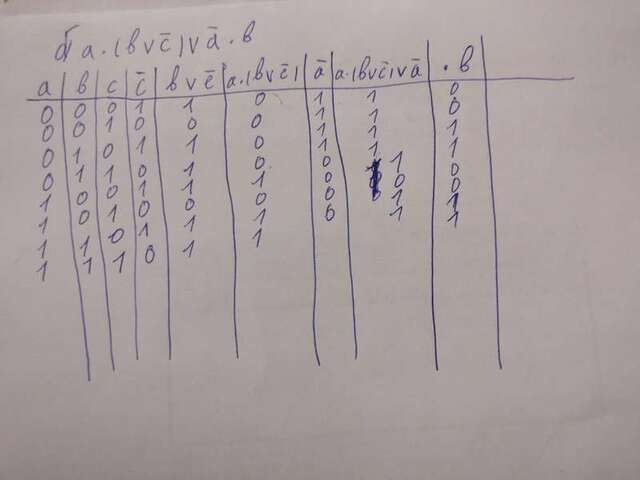 б) a·(b∨c̄)∨ā·b
a b c c̄ b∨c̄ a·(b∨c̄) ā a·(b∨c̄)∨ā ·b
0 0 0 1 1 0 1 1 0
0 0 1 0 0 0 1 1 0
0 1 0 1 1 0 1 1 1
0 1 1 0 1 0 1 1 1
1 0 0 1 1 1 0 1 0
1 0 1 0 0 0 0 0 0
1 1 0 1 1 1 0 1 1
1 1 1 0 1 1 0 1 1